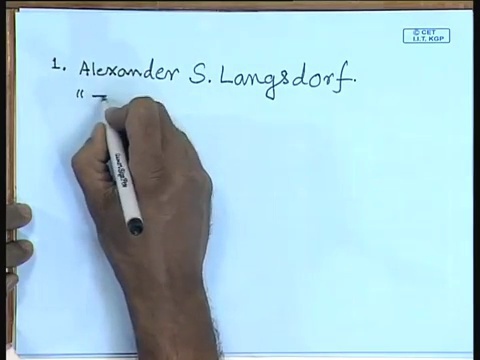 © CET
I.I.T. KGP
1. Alexander S. Langsdorf.
"